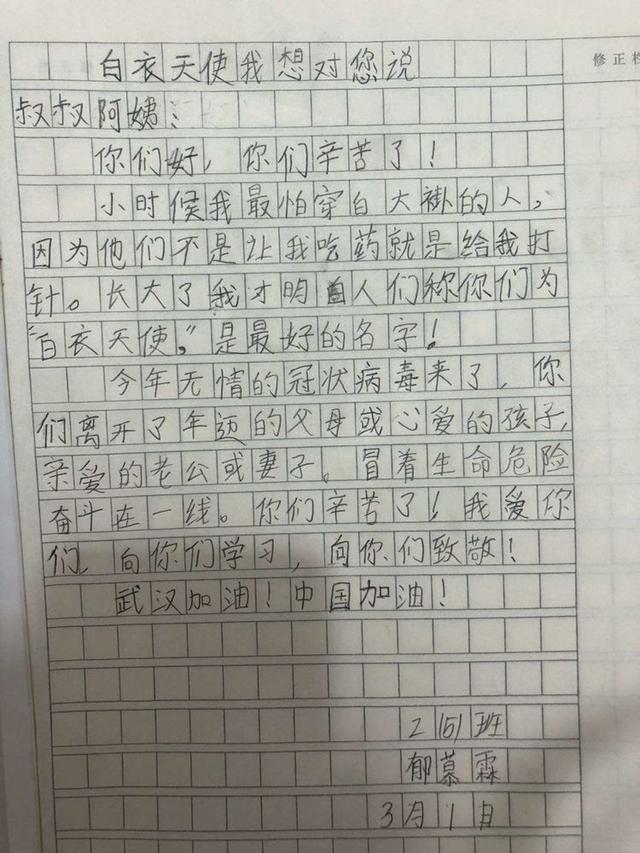 修正栏
白衣天使我想对您说
叔叔阿姨：
你们好，你们辛苦了！
小时候我最怕穿白大褂的人，
因为他们不是让我吃药就是给我打
针。长大了我才明白人们称你们为
“白衣天使，”是最好的名字！
今年无情的冠状病毒来了，你
们离开了年迈的父母或心爱的孩子，
亲爱的老公或妻子。冒着生命危险
奋斗在一线。你们辛苦了！我爱你
们，向你们学习，向你们致敬！
武汉加油！中国加油！
2151班
郁慕霖
3月1日